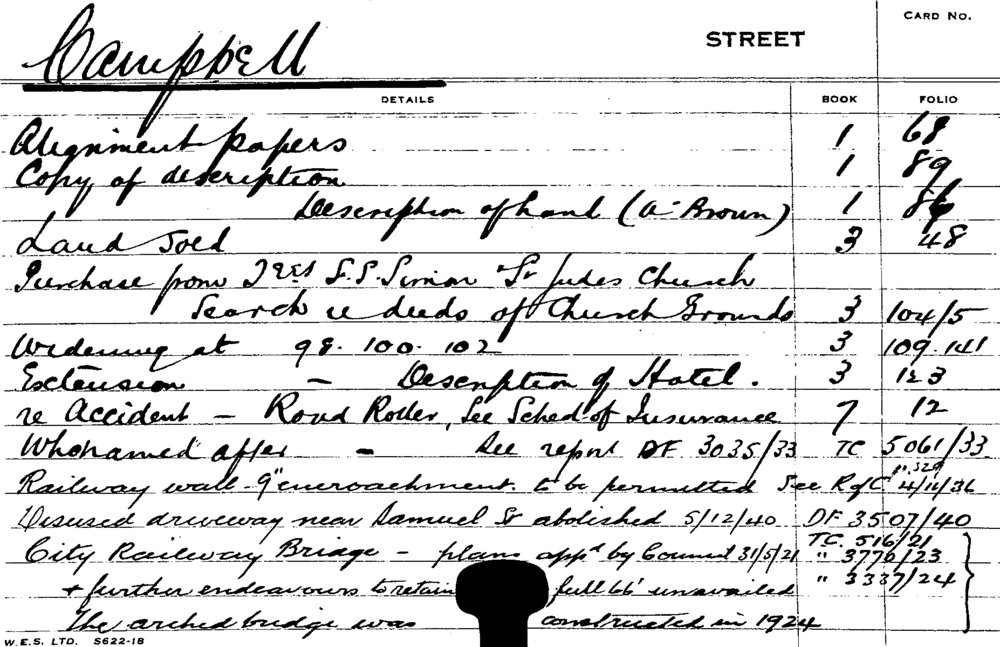 CARD No.
Campbell STREET
DETAILS BOOK FOLIO
Alignment papers 1 68
Copy of description 1 89
Description of land (A. Brown) 1 86
Land Sold 3 48
Purchase from S.P. St Judes Church
Search re deeds of Church Grounds 3 104/5
Widening at 98. 100. 102 3 109. 141
Extension - Description of Hotel. 3 123
re Accident - Road Roller, See Sched of Insurance 7 12
Who named after - See report DF 3035/33 TC 5061/33
Railway wall - 9" encroachment. to be permitted See R of C 4/11/36
Disused driveway near Samuel St abolished 5/12/40 DF 3507/40
City Railway Bridge - plans appd by Council 31/5/21 TC. 516/21
" 3770/23
+ further endeavours to retain full 66' unavailed " 3337/24
The arched bridge was constructed in 1924
W.E.S. LTD. S622-18